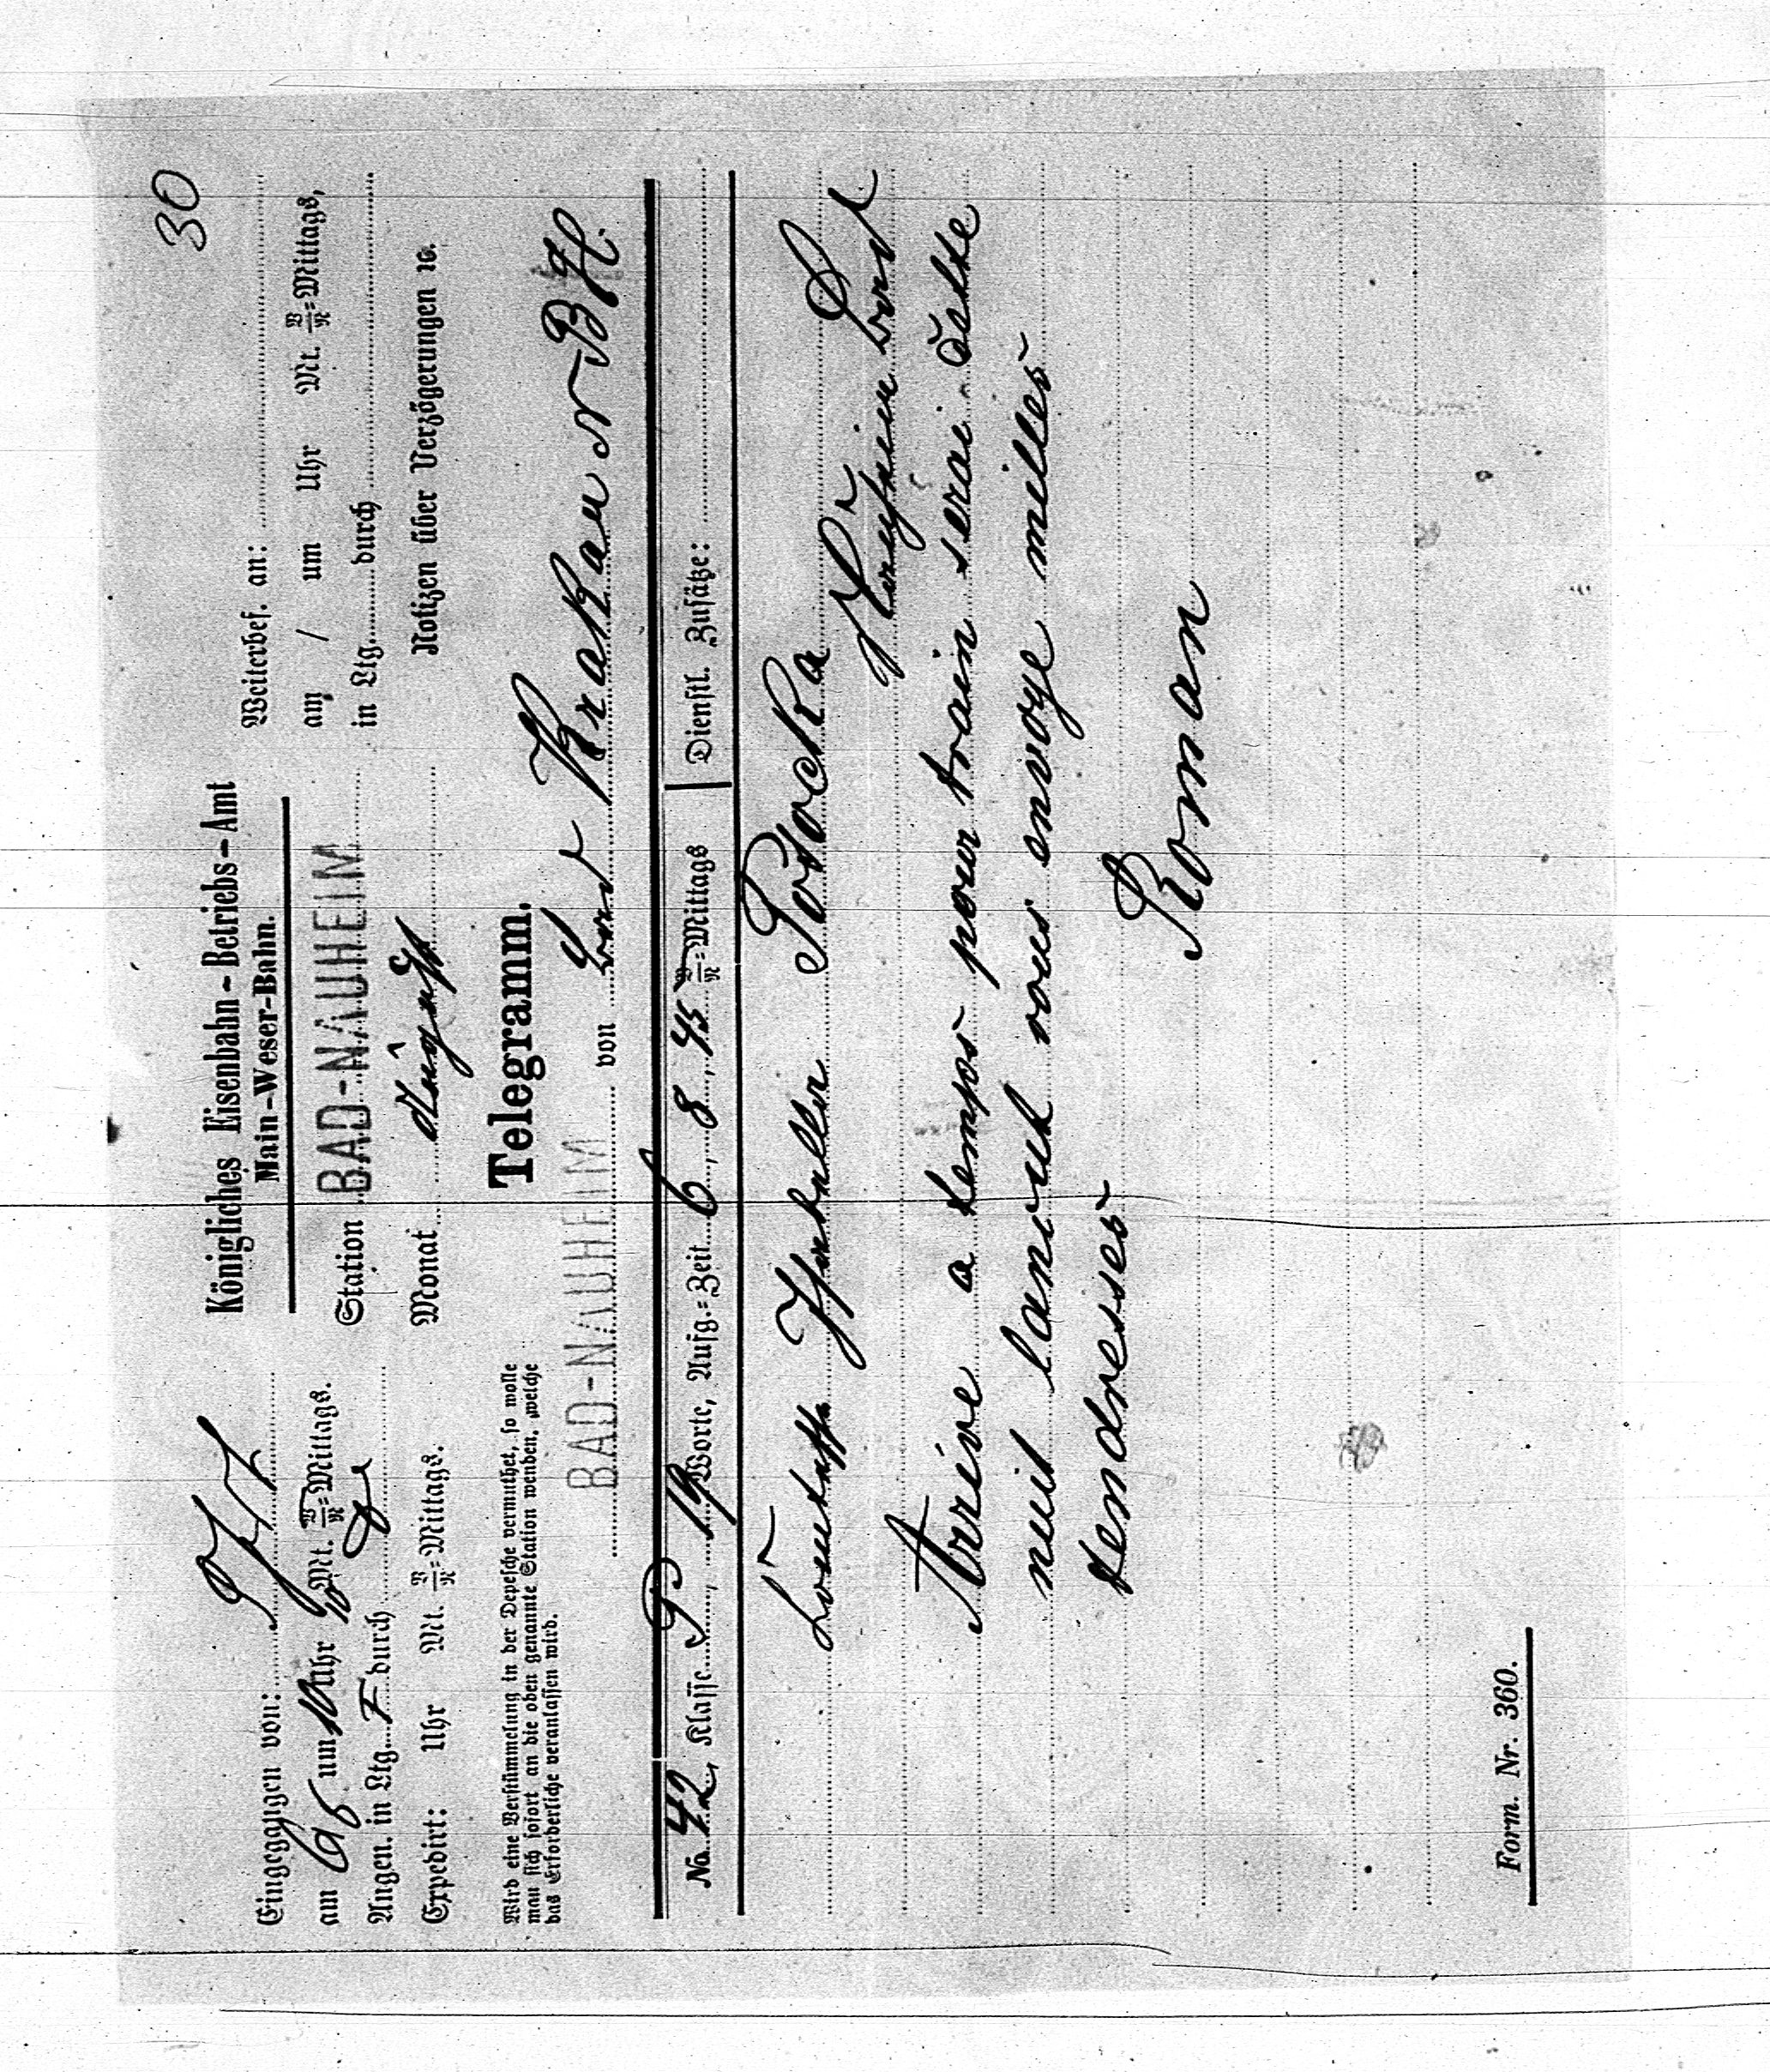 30
Eingegangen von:
am 6/8 um 10 Uhr Mt. V/N=Mittags.
Angen. in Ltg. F durch
Expedirt: Uhr Mt. V/N=Mittags.
Königliches Eisenbahn-Betriebs-Amt
Main-Weser-Bahn.
Station BAD-NAUHEIM
Monat August
Weiterbef. an:
am / um Uhr Mt. V/N=Mittags,
in Ltg. durch
Notizen über Verzögerungen ꝛc.
Wird eine Verstümmelung in der Depesche vermuthet, so wolle
man sich sofort an die oben genannte Station wenden, welche
das Erforderliche veranlassen wird.
Telegramm.
BAD-NAUHEIM von Krakau N BH.
No. 42, Klasse P, 19 Worte, Aufg.=Zeit 6, 8, 45 V/N=Mittags Dienstl. Zusätze:
Potocka
Arrive a temps pour train serai cette
nuit lancut vous envoye milles
tendresses
Roman
Form. Nr. 360.